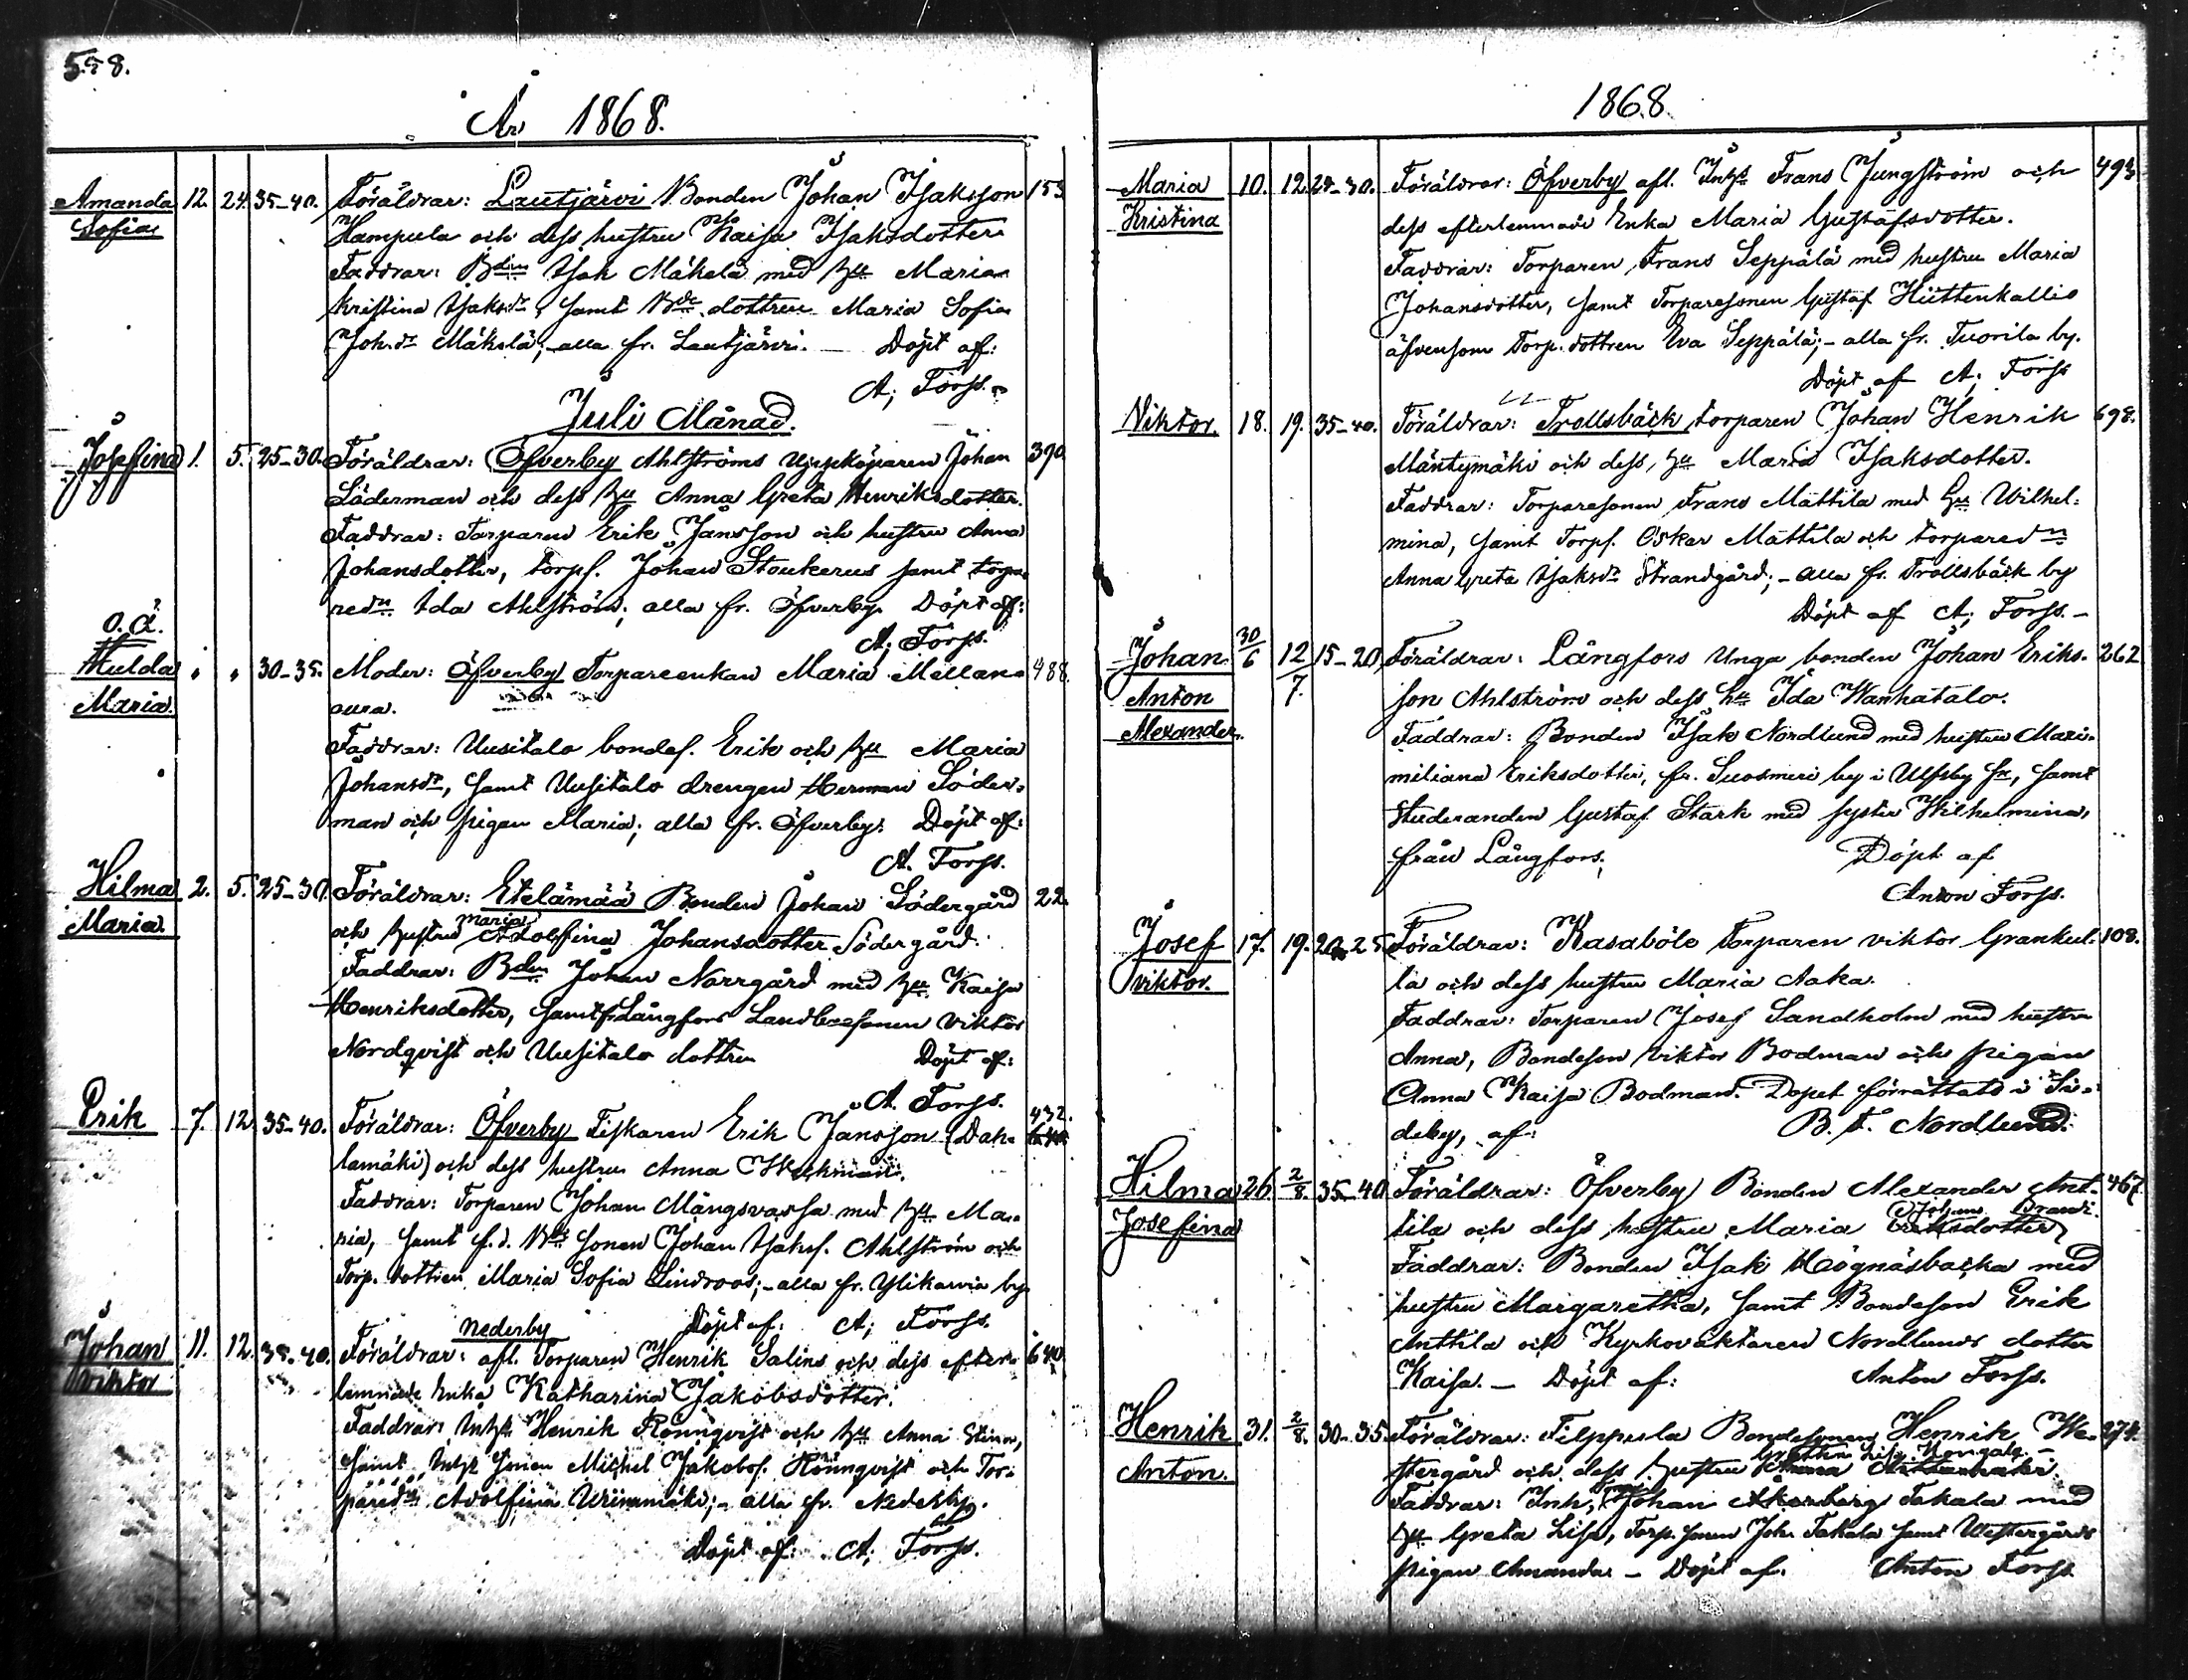 558.
År 1868.
Amanda Sofia 12. 24. 35-40. Föräldrar: Lautjärvi Bonden Johan Isaksson 153
Hampula och dess hustru Kaisa Isaksdotter
Faddrar: Bdn Isak Mäkelä med hu Maria
Kristina Isaksdr, samt Bde dottren Maria Sofia
Joh.dr Mäkelä; - alla fr. Lautjärvi. - Döpt af:
A; Forss. -
Juli Månad.
Josefina 1. 5. 25-30. Föräldrar: Öfverby Ahlströms Johan 390
Söderman och dess hu Anna Greta Henriksdotter.
Faddrar: Torparen Erik Jansson och hustru Anna
Johansdotter, torps. Johan Stoukerus samt torpa-
redn Ida Ahlström; alla fr. Öfverby. Döpt af:
A; Forss.
o. ä.
Hulda Maria „ „ 30-35. Moder: Öfverby Torpareenkan Maria Mellan- 488.
Faddrar: Uusitalo bondes. Erik och hu Maria
Johansdr, samt Uusitalo drengen Herman Söder-
man och pigan Maria; alla fr. Öfverby. Döpt af:
A. Forss.
Hilma Maria 2. 5. 25-30. Föräldrar: Etelämää Bonden Johan Södergård 22.
och hustru Maria Adolfina Johansdotter Södergård.
Faddrar: Bdn Johan Norrgård med hu Kaisa
Henriksdotter, samt fr Långfors Landbosonen Viktor
Nordqvist och Uusitalo dottren Döpt af:
A. Forss.
Erik 7. 12. 35-40. Föräldrar: Öfverby Fiskaren Erik Jansson (Dah- 432.
lamäki) och dess hustru Anna Wekman.
Faddrar: Torparen Johan Mångsvassa med hu Ma-
ria, samt f.d. Bde sonen Johan Isakss. Ahlström och
Torp. dottren Maria Sofia Lindroos; - alla fr. Ylikarvia by
Döpt af: A; Forss.
Nederby
Johan Viktor 11. 12. 35-40. Föräldrar: afl. Torparen Henrik Salins och dess efter- 640
lemnade Enka Katharina Jakobsdotter.
Faddrar: Inhs Henrik Rönnqvist och hu Anna Stina,
samt Inhs sonen Michel Jakobss. Rönnqvist och Tor-
paredn Adolfina Uriinmäki; - alla fr. Nederby.
Döpt af: A; Forss.
1868.
Maria Kristina 10. 12. 25-30. Föräldrar: Öfverby afl. Inhs Frans Ljungström och 493
dess efterlemnade Enka Maria Gustafsdotter.
Faddrar: Torparen Frans Seppälä med hustru Maria
Johansdotter, samt Torparesonen Gustaf Hiittenkallio
äfvensom Torp. dottren Eva Seppälä; - alla fr. Tuorila by.
Döpt af A; Forss
Viktor. 18. 19. 35-40. Föräldrar: Trollsbäck, torparen Johan Henrik 698.
Mäntymäki och dess hu Maria Isaksdotter.
Faddrar: Torparesonen Frans Mattila med hu Wilhel-
mina, samt Torps. Oskar Mattila och torparedn
Anna Greta Isaksdr Strandgård; - alla fr. Trollsbäck by
Döpt af A; Forss. -
Johan Anton Alexander. 30/6 12/7 15-20 Föräldrar: Långfors Unga bonden Johan Eriks- 262
son Ahlström och dess hu Ida Wanhatalo.
Faddrar: Bonden Isak Nordlund med hustru Maxi-
miliana Eriksdotter, fr. Suosmeri by i Ulfsby sn, samt
Studeranden Gustaf Stark med syster Wilhelmina,
från Långfors; Döpt af
Anton Forss.
Josef Viktor. 17. 19. 20-25. Föräldrar: Kasaböle Torparen Viktor Grankul- 108.
la och dess hustru Maria Aaka.
Faddrar: Torparen Josef Sandholm med hustru
Anna, Bondeson Viktor Bodman och pigan
Anna Kaisa Bodman. Dopet förrättats i Si-
deby, af: B. F. Nordlund.
Hilma Josefina 26. 2/8. 35-40 Föräldrar: Öfverby Bonden Alexander Ant- 467
tila och dess hustru Maria Eriksdotter
Faddrar: Bonden Isak Högnäsbacka med
hustru Margaretha, samt Bondeson Erik
Anttila och Kyrkovaktaren Nordlunds dotter
Kaisa. - Döpt af: Anton Forss.
Henrik Anton. 31. 2/8. 30-35. Föräldrar: Filppula Bondesonen Henrik We- 274.
stergård och dess hustru
Faddrar: Inh; Johan Åkerberg Takala med
hu Greta Lisa, Torp. sonen Joh. Takala samt Westergårds
pigan Amanda - Döpt af. Anton Forss.